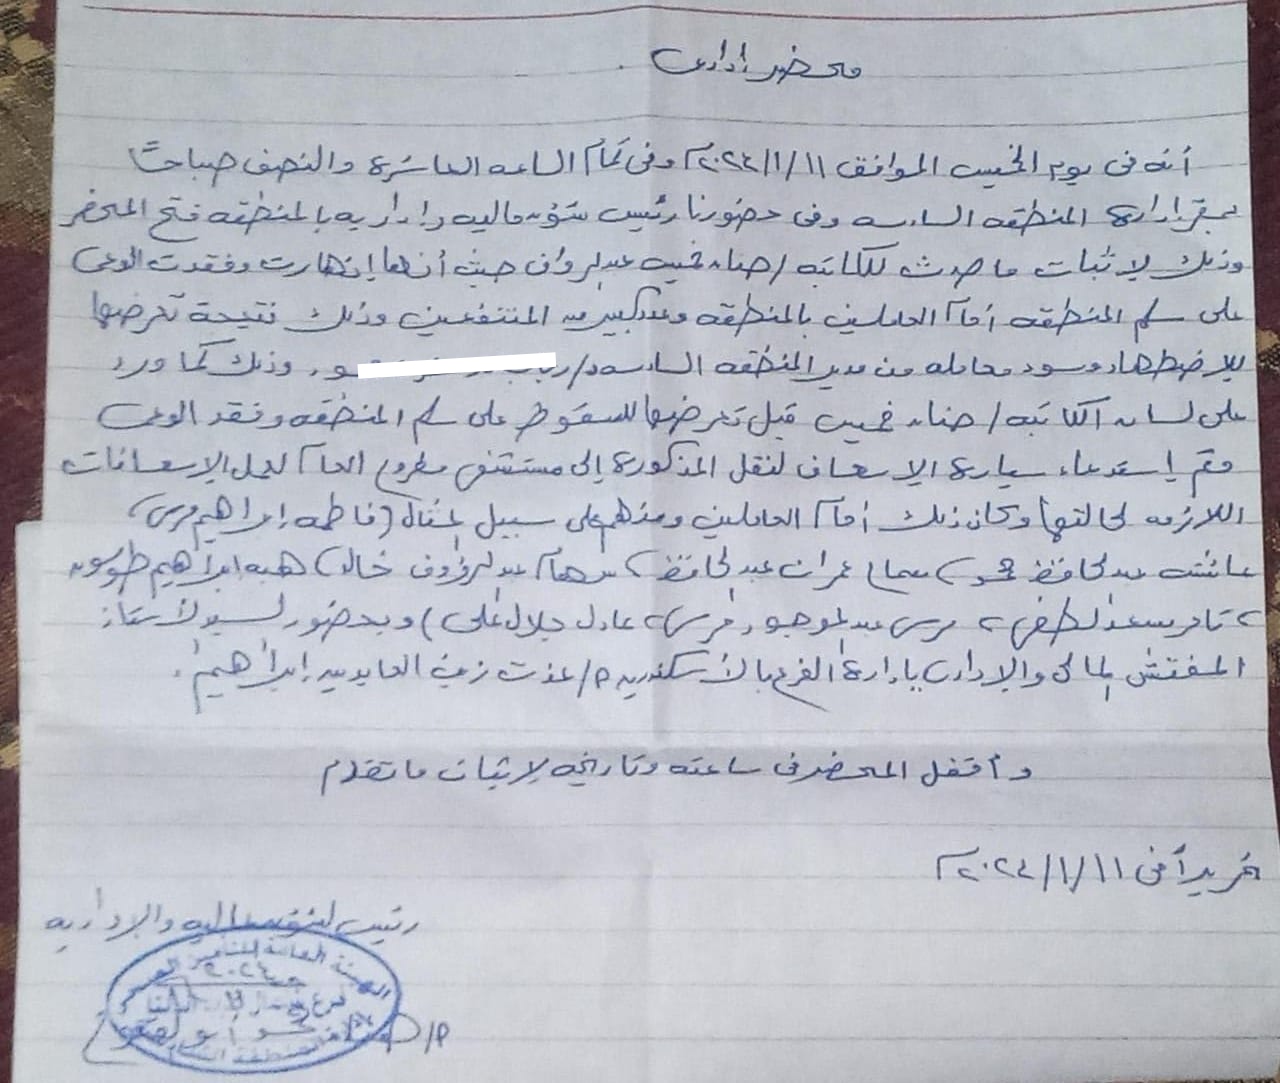 محضر إدارى
أنه فى يوم الخميس الموافق ٢٠٢٤/١/١١م وفى تمام الساعه العاشرة والنصف صباحاً
بمقر إدارة المنطقه السادسه وفى حضورنا رئيس شئون ماليه وإداريه بالمنطقه فتح المحضر
وذلك لإثبات ما حدث للكاتبه / هناء خميس عبدالرؤف حيث أنها إنهارت وفقدت الوعى
على سلم المنطقه أمام العاملين بالمنطقه وعدد كبير من المنتفعين وذلك نتيجة تعرضها
للاضطهاد وسوء معامله من مدير المنطقه السادسه د/ وذلك كما ورد
على لسان الكاتبه / هناء خميس قبل تعرضها للسقوط على سلم المنطقه وفقد الوعى
وتم إستدعاء سيارة الإسعاف لنقل المذكورة إلى مستشفى مطروح العام لعمل الإسعافات
اللازمه لحالتها وكان ذلك أمام العاملين ومنهم على سبيل المثال (فاطمه إبراهيم مرسى،
عائشه عبدالحافظ ، سماح عمران عبدالحافظ ، سهام عبدالرؤوف خالد، هبه ابراهيم
، تامر سعد لطفى ، مرسى عبدالموجود مرسى، عادل جلال على) وبحضور السيد الأستاذ
المفتش المالى والإدارى بإدارة الفرع بالأسكندريه م/ عزت زين العابدين إبراهيم.
وأقفل المحضر فى ساعته وتاريخه لإثبات ما تقدم
تحريراً فى ٢٠٢٤/١/١١م
رئيس الشئون الماليه والإداريه
الهيئة العامة للتأمين الصحى